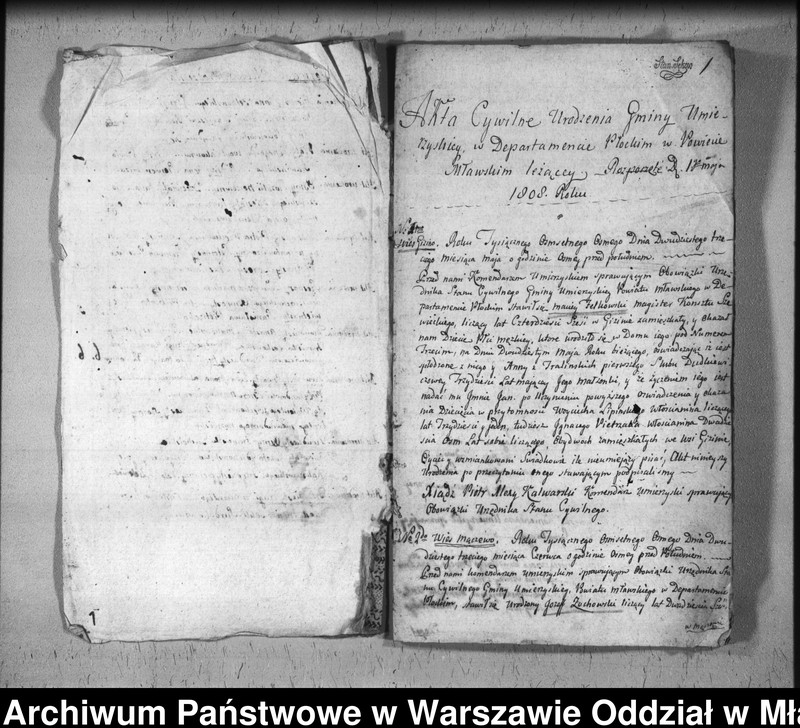 1
Akta Cywilne Urodzenia Gminy Umie-
nyskiey, w Departamencie Płockim w Powiecie
Mławskim leżącey, Rozpoczęte D. 1 maja
1808. Roku
No 1
Wieś Giżino. Roku Tysiącznego Osmsetnego Osmego Dnia Dwudziestego trze-
ciego miesiąca maja o godzinie Osmey przed południem.
Przed nami Komendarzem Umienyskim sprawującym Obowiązki Urzę-
dnika Stanu Cywilnego Gminy Umienyskiey Powiatu Mławskiego w De-
partamencie Płockim Stawił się Maciey Fetkowski magister Konsztu
liczący lat Czterdzieści Sześć w Giżinie zamieszkały, y okazał
nam Dziecie Płci męzkiey, ktore urodziło się w Domu iego pod Numerem
Trzecim, na dniu Dwudziestym Maja Roku bieżącego, oswiadczaiąc iż iest
spłodzone z niego y Anny z pierwszego Slubu
Trzydzieści Lat maiącey Jego małżonki, y że życzeniem iego iest
nadać mu Imnie Jan. po Uczynieniu powyższego oswiadczenia y okaza-
nia Dziecięcia w przytomności Woyciecha Lipinskiego włościanina liczącego
lat Trzydzieści y jeden, tudzież Ignacego Pietrzaka włościanina Dwadzie
scia Osm Lat sobie liczącego Obydwoch zamieszkałych we wsi Giżinie,
Oyciec y wzmiankowani Swiadkowie ile nieumiejący pisać, Akt ninieyszy
Urodzenia po przeczytaniu onego stawaiącym podpisaliśmy
Xiądz Piotr Alexy Kalwarski Komendarz Umienyski sprawuiący
Obowiązki Urzędnika Stanu Cywilnego.
No 2do Wieś Mączewo. Roku Tysiącznego Osmsetnego Osmego Dnia Dwu-
dziestego trzeciego miesiąca Czerwca o godzinie Osmey przed Południem.
Przed nami komendarzem umienyskim sprawuiącym Obowiązki Urzędnika Sta-
nu Cywilnego Gminy Umienyskiey, Powiatu Mławskiego w Departamencie
Płockim, stawił się Urodzony Jozef Zuchowski liczący lat Dwadzieścia
Archiwum Państwowe w Warszawie Oddział w Mła